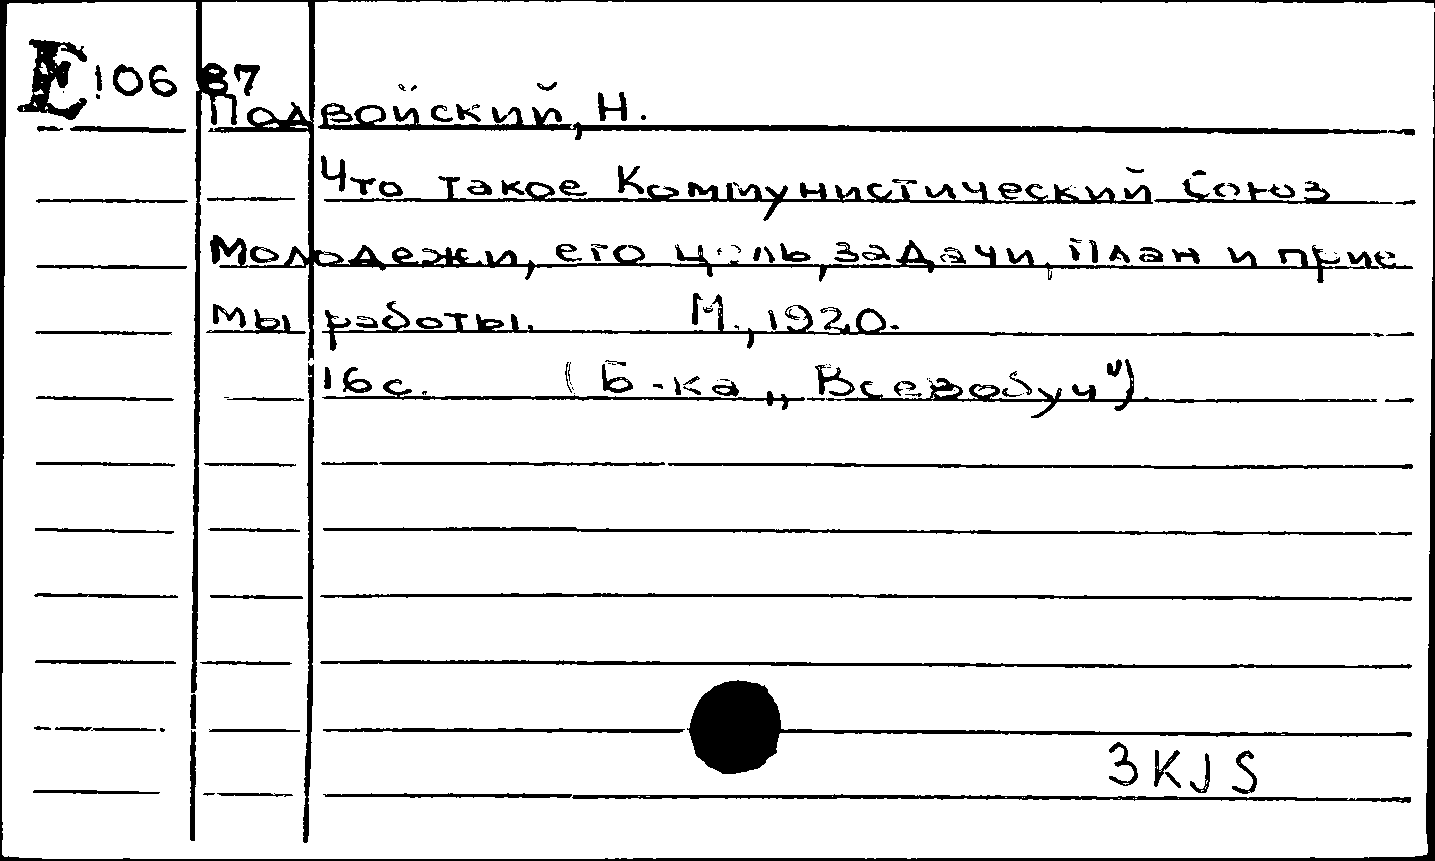 E 106 87
Подвойский, Н.
Что такое Коммунистический Союз
Молодежи, его цель, задачи, План и прие
мы работы. М., 1920.
16 с. (Б-ка „Всевобуч")
3KJS